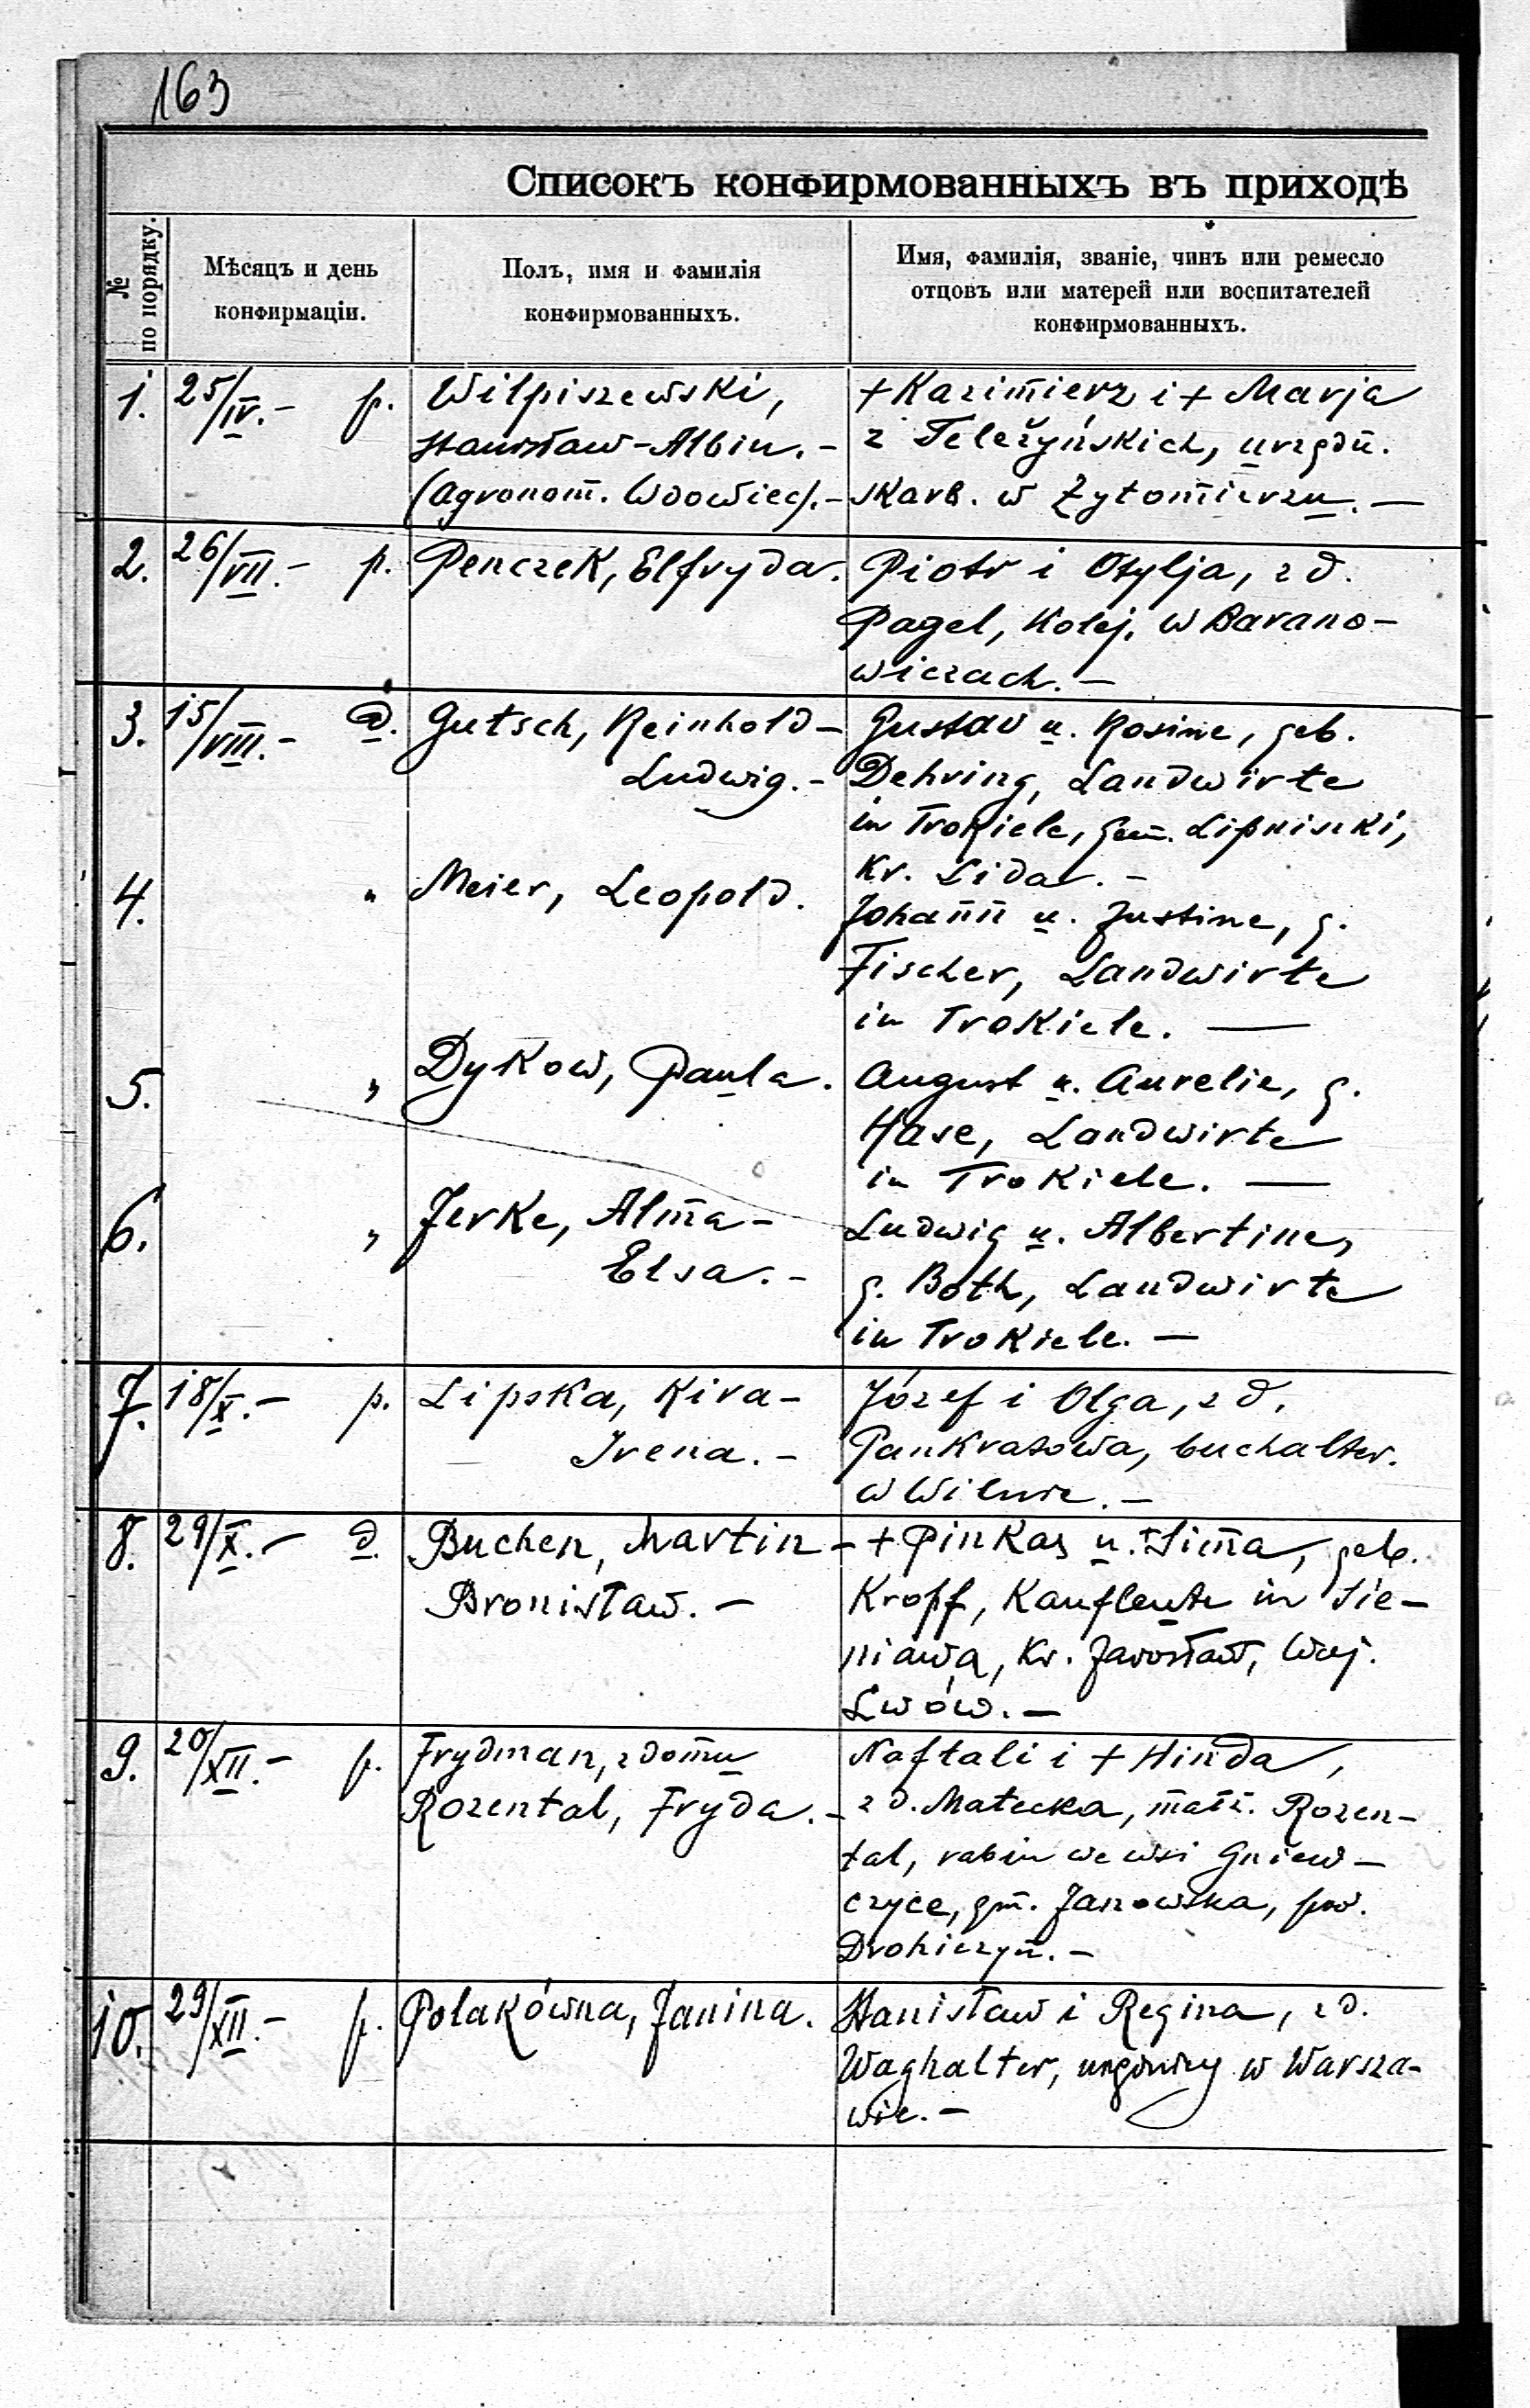 163
Списокъ конфирмованныхъ въ приходѣ
№ по порядку.
Мѣсяцъ и день
конфирмаціи.
Полъ, имя и фамилія
конфирмованныхъ.
Имя, фамилія, званіе, чинъ или ремесло
отцовъ или матерей или воспитателей
конфирмованныхъ.
1. 25/IV.– p. Wilpiszewski, + Kazimierz i + Marja
Stanisław-Albin. – z Teležyńskich, urzędn.
(agronom. Wdowiec). – skarb. w Żytomierzu. –
2. 26/VII.– p. Penczek, Elfryda. Piotr i Otylja, z d.
Pagel, kolej. w Barano-
wiczach. –
3. 15/VIII.– d. Gutsch, Reinhold– Gustav u. Rosine, geb.
Ludwig. – Dehring, Landwirte
in Trokiele, Gem. Lipniszki,
Kr. Lida. –
4. " Meier, Leopold. Johann u. Justine, g.
Fischer, Landwirte
in Trokiele. –
5. " Dykow, Paula. August u. Aurelie, g.
Hase, Landwirte
in Trokiele. –
6. " Jerke, Alma– Ludwig u. Albertine,
Elsa. – g. Both, Landwirte
in Trokiele. –
7. 18/X.– p. Lipska, Kira– Józef i Olga, z d.
Irena. – Pankratowa, buchalter.
w Wilnie. –
8. 29/X.– d. Buchen, Martin – + Pinkas u. + Sima, geb.
Bronisław. – Kropf, Kaufleute in Sie–
niawa, Kr. Jarosław, Woj.
Lwów. –
9. 20/XII.– p. Frydman, z domu Naftali i + Hinda,
Rozental, Fryda. – z d. Matecka, małż. Rozen–
tal, rabin we wsi Gniew–
czyce, gm. Janowska, pow.
Drohiczyn. –
10. 29/XII.– p. Polakówna, Janina. Stanisław i Regina, z d.
Waghalter, w Warsza-
wie. –